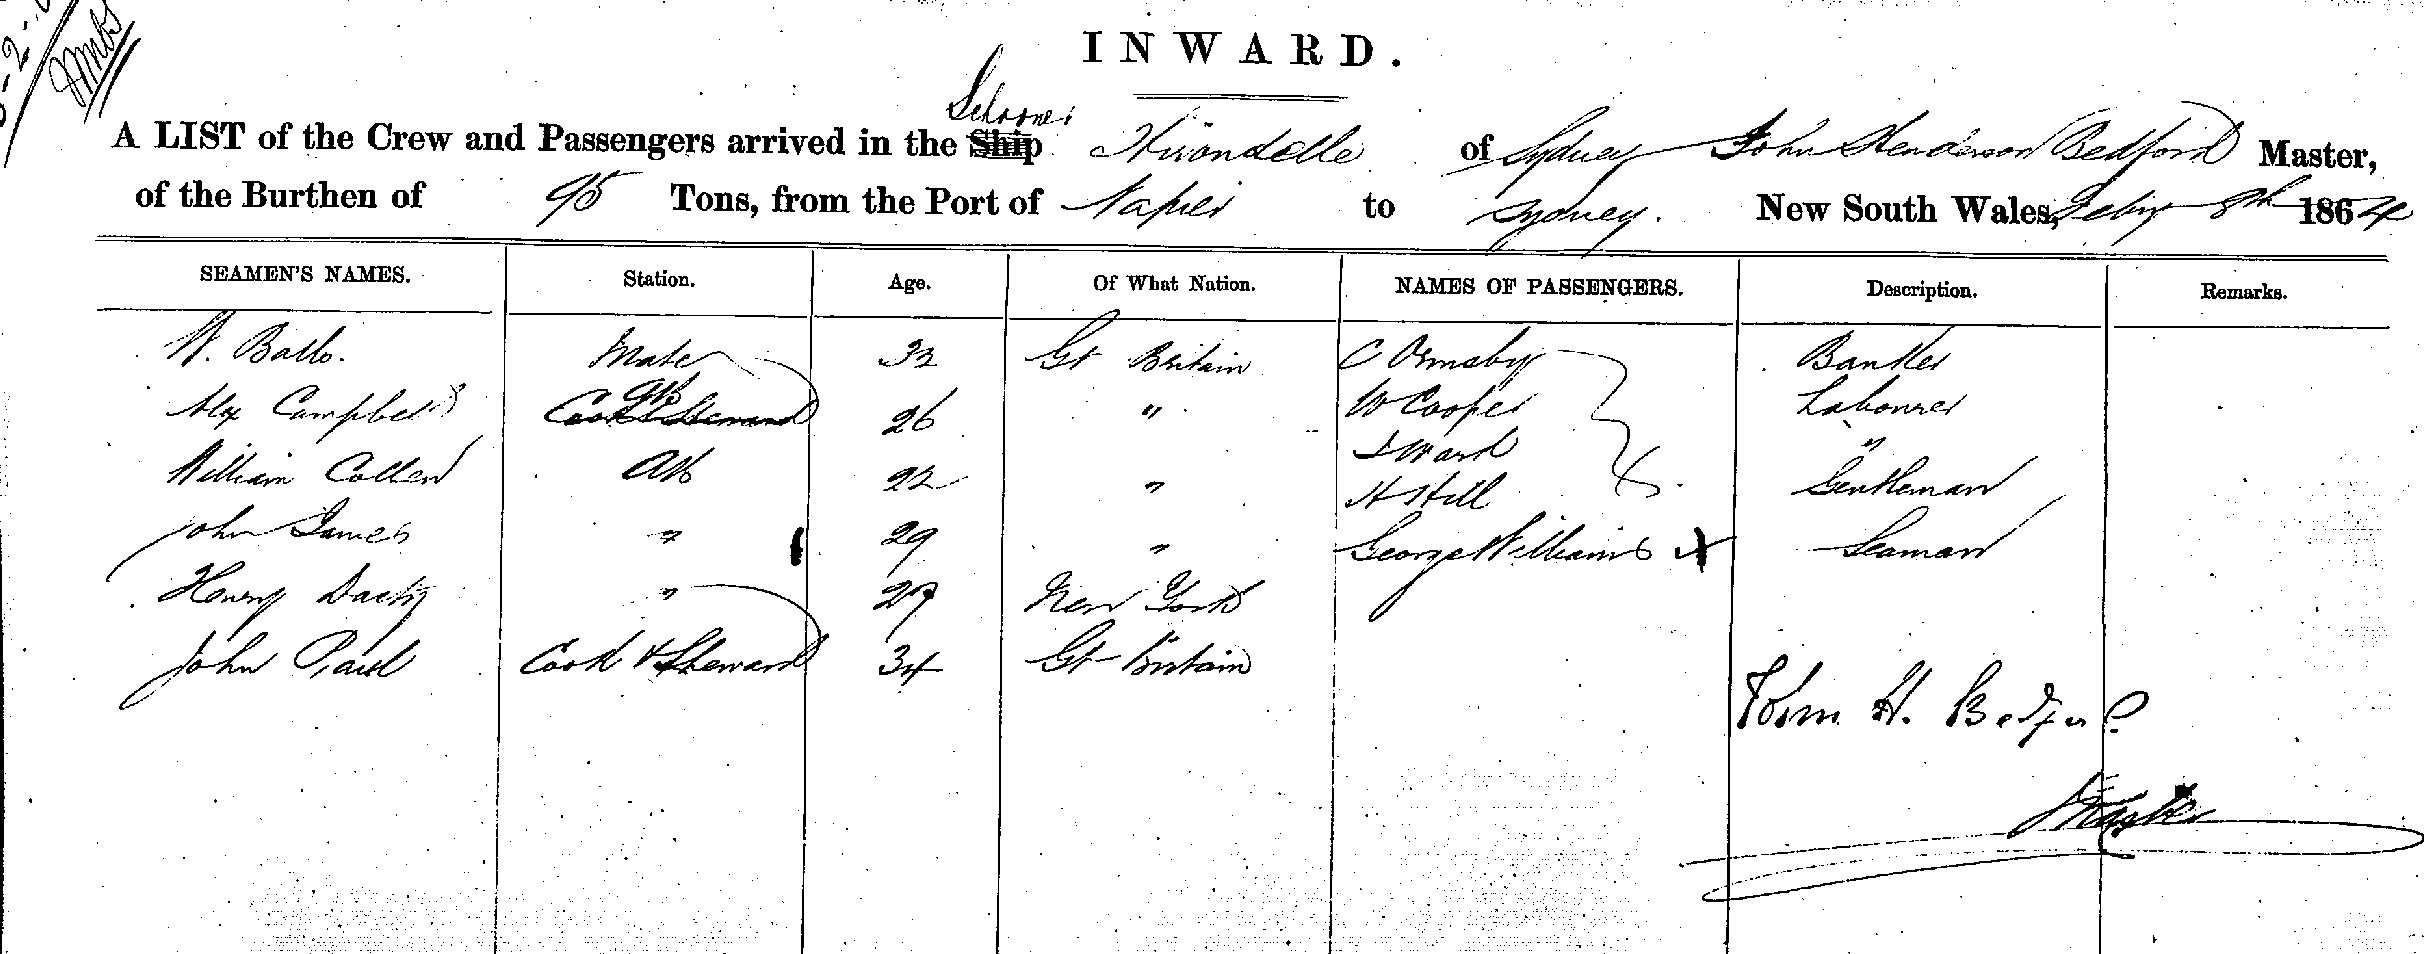 INWARD.
Schooner
A LIST of the Crew and Passengers arrived in the Ship Hirondelle of Sydney John Henderson Bedford Master,
of the Burthen of 95 Tons, from the Port of Napier to Sydney. New South Wales, Feby 8th 1864
SEAMEN'S NAMES. Station. Age. Of What Nation. NAMES OF PASSENGERS. Description. Remarks.
W. Mate 32 Gt Britain C Ormsby Banker
AB
Alex Campbell Cook & Steward 26 " W Cooper Labourer
William Collen AB 22 " J Ward "
John James " 29 " H Hill Gentleman
Henry " 27 New York George Williams x Seaman
John Paul Cook & Steward 34 Gt Britain
John H. Bedford
Master